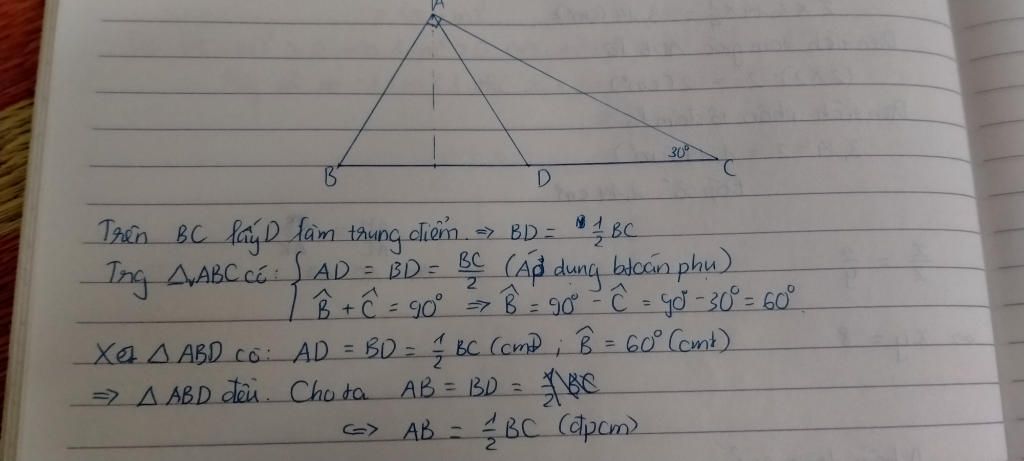 A
30°
B D C
Trên BC lấy D làm trung điểm ⇒ BD = 1/2 BC
Trg △vABC có: { AD = BD = BC/2 (Áp dụng btoán phụ)
B̂ + Ĉ = 90° ⇒ B̂ = 90° - Ĉ = 90° - 30° = 60°
Xét △ ABD có: AD = BD = 1/2 BC (cmt) ; B̂ = 60° (cmt)
⇒ △ ABD đều. Cho ta AB = BD = 1/2 BC
⇔ AB = 1/2 BC (đpcm)